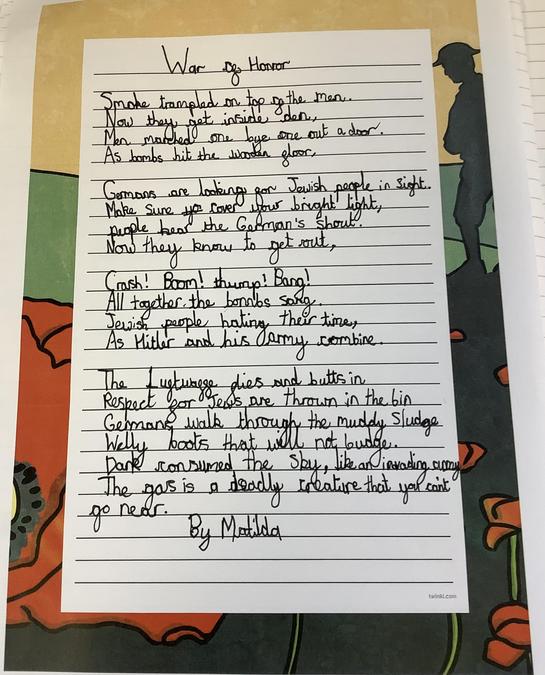 War of Honor
Smoke trampled on top of the men.
Now they get inside den,
Men marched one bye one out a door.
As bombs hit the wooden floor,
Germans are looking for Jewish people in sight.
Make sure you cover your bright light,
people hear the German's shout.
Now they know to get out,
Crash! Boom! thump! Bang!
All together the bombs sang.
Jewish people hating their time,
As Hitler and his army combine.
The Luftwage flies and butts in
Respect for Jews are thrown in the bin
Germans walk through the muddy sludge
Welly boots that will not budge.
Dark consumed the Sky, like an invading army
The gas is a deadly creature that you can't
go near.
By Matilda
twinkl.com